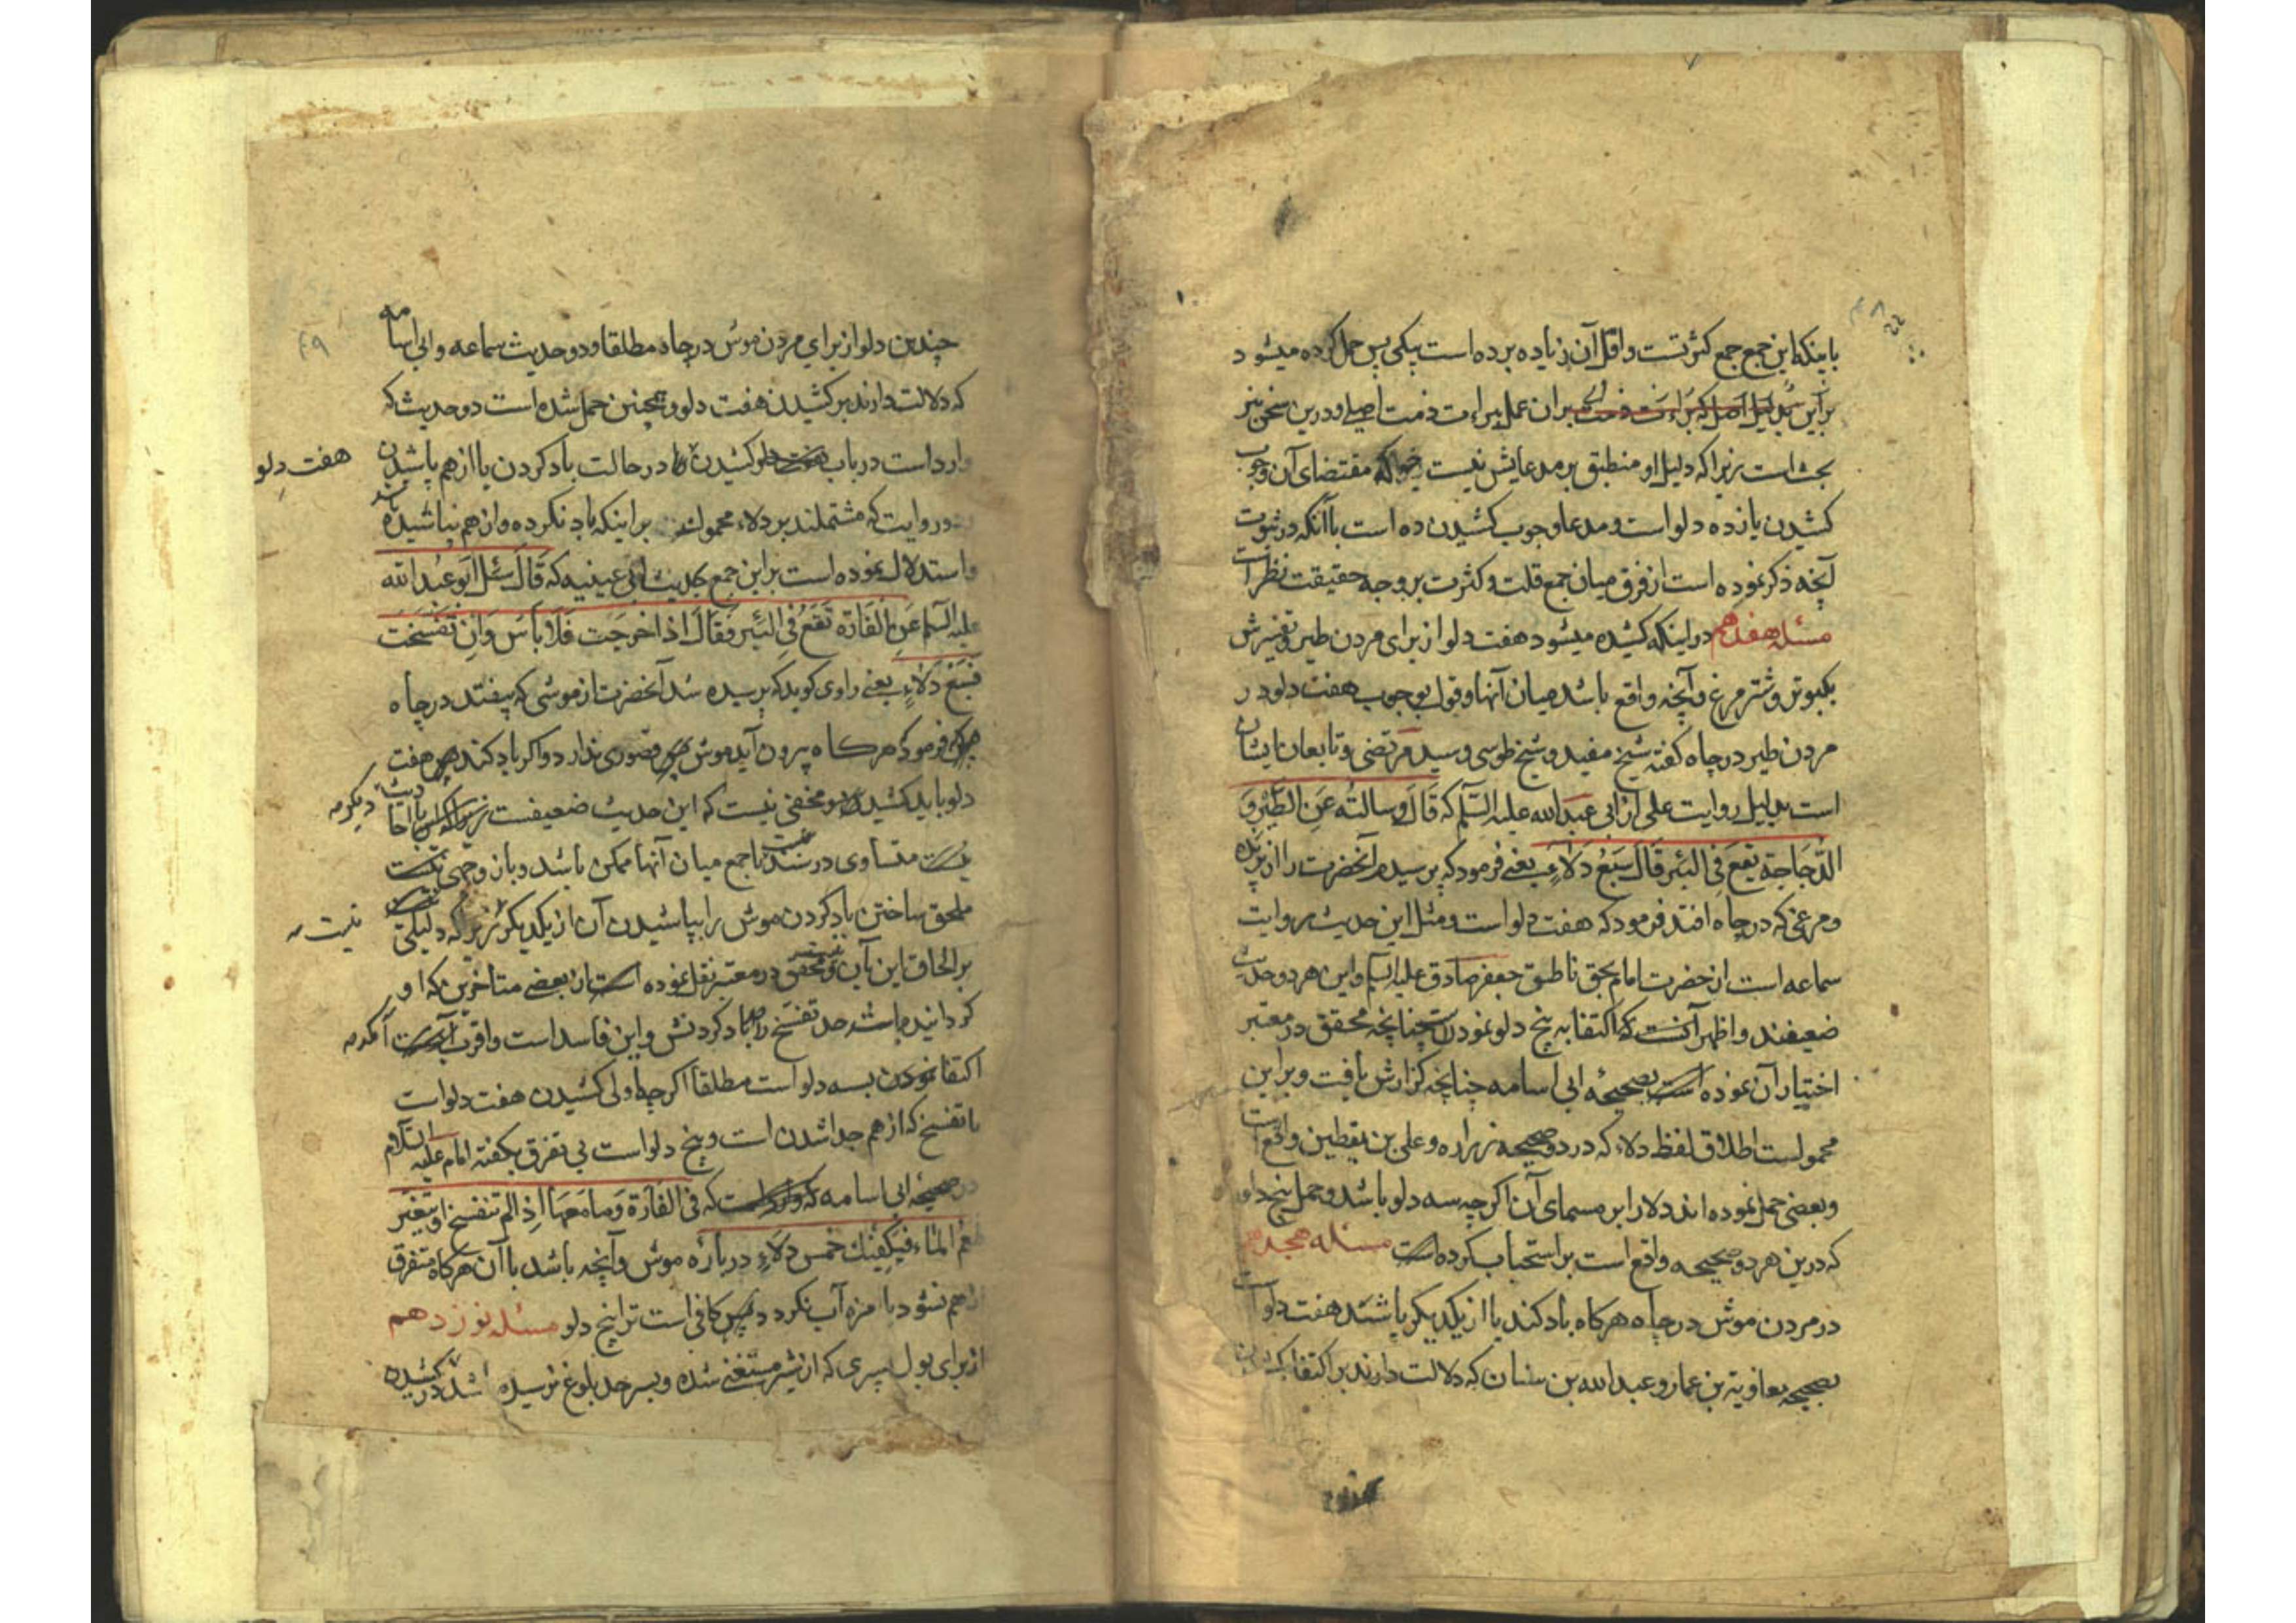 باینکه این جمع جمع کثرتست و اقل آن زیاده بر ده است بیکی پس حمل کرده میشود
بر این بدلیل اصل که براءت ذمت بر ان عمل براءت ذمت اصلی و درین سخن نیز
بحث است زیرا که دلیل او منطبق بر مدعایش نیست چو آنکه مقتضای آن وجوب
کشیدن یازده دلو است و مدعا وجوب کشیدن ده است با آنکه در ثبوت
آنچه ذکر نموده است از فرق میان جمع قلت و کثرت بر وجه حقیقت نظر است
مسئله هفدهم در اینکه کشیده میشود هفت دلو از برای مردن طیر و تفسیرش
بکبوتر و شتر مرغ و آنچه واقع باشد میان آنها و قول بوجوب هفت دلو در
مردن طیر در چاه کفته شیخ مفید و شیخ طوسی و سید مرتضی و تابعان ایشان
است بدلیل روایت علی از ابی عبدالله علیه السلم که قَالَ وسالتُه عَنِ الطَّیْرِ وَ
الدَّجَاجَةِ تَقَعُ فِی البِئرِ قَالَ سَبْعُ دِلَاءٍ یعنی فرمود که پرسیدم آنحضرت را از پرنده
و مرغی که در چاه افتد فرمود که هفت دلو است و مثل این حدیث روایت
سماعه است از حضرت امام بحق ناطق جعفر صادق علیه السلم و این هر دو حدیث
ضعیفند و اظهر آنست که اکتفا به پنج دلو نمودن چنانچه محقق در معتبر
اختیار آن نموده است بصحیحهٔ ابی اسامه چنانچه کزارش یافت و بر این
محمولست اطلاق لفظ دلاء که در دو صحیحه زراره و علی بن یقطین واقع است
و بعضی حمل نموده اند دلا را بر مسمای آن اکرچه سه دلو باشد و حمل پنج دلو
که درین هر دو صحیحه واقع است بر استحباب کرده است مسئله هجدهم
در مردن موش در چاه هرکاه باد کند یا از یکدیکر پاشند هفت دلو است
بصحیحه معاویة بن عمار و عبدالله بن سنان که دلالت دارند بر اکتفا بکشیدن
چندین دلو از برای مردن موش در چاه مطلقا و دو حدیث سماعه و ابی اسامه
که دلالت دارند بر کشیدن هفت دلو و همچنین حمل شده است دو حدیث که
وارد است در باب هفت دلو کشیدن در حالت باد کردن یا از هم پاشیدن
هفت دلو
دو روایت که مشتملند بر دلاء محمولند بر اینکه باد نکرده و از هم نپاشیده باشد
و استدلال نموده است بر این جمع بحدیث ابی عیینه که قَالَ سُئِلَ اَبُو عَبْدِ الله
علیه السلم عَنِ الْفَارَةِ تَقَعُ فِی البِئْرِ فَقَالَ اِذَا خَرَجَت فَلَا بَاسَ وَاِنْ تَفَسَّخَتْ
فَسَبْعُ دِلَاءٍ یعنی راوی کوید که پرسیده شد آنحضرت از موشی که بیفتد در چاه
فرمود هرکاه بیرون آید موش قصوری ندارد و اکر باد کند هفت
دلو باید کشید و مخفی نیست که این حدیث ضعیفست
دیکر
متساوی در سند تا جمع میان آنها ممکن باشد و باز وجهی
ملحق ساختن باد کردن موش را بپاشیدن آن از یکدیکر زیرا که دلیلی
نیست
بر الحاق این بآن و محقق در معتبر نقل نموده است از بعضی متاخرین که او
کردانیده باشد حد تفسخ را باد کردنش و این فاسد است و اقرب آنست
اکتفا نمودن بسه دلو است مطلقا اکرچه اولی کشیدن هفت دلو است
با تفسخ که از هم جدا شدن است و پنج دلو است بی تفرق بکفته امام علیه السلام
در صحیحه ابی اسامه که فِی الفَارَةِ وَمَا مَعَهَا اِذَا لَم تَنْفَسِخ او یتغیر
طعم الماء فیکفیک خَمس دِلاءٍ در باره موش و آنچه باشد با آن هرکاه متفرق
از هم نشود یا مزه آب نکردد پس کافی است ترا پنج دلو مسئله نوزدهم
از برای بول پسری که از شیر مستغنی شده و بسر حد بلوغ نرسیده